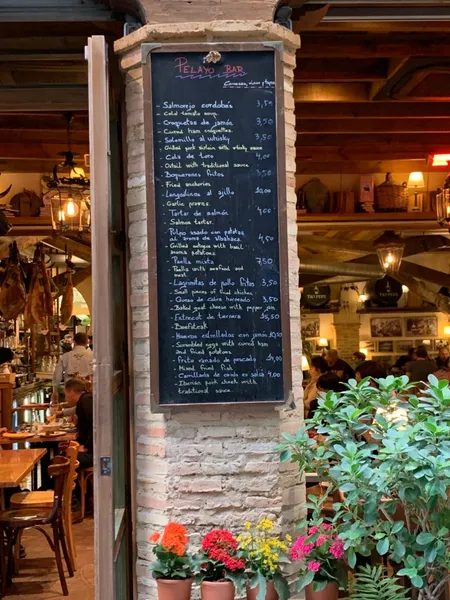 PELAYO BAR
- Salmorejo cordobés 3,50
- Cold tomato soup.
- Croquetas de jamón 3,50
- Cured ham croquettes.
- Solomillo al whisky 3,50
- Grilled pork sirloin with whisky sauce
- Cola de toro 4,00
- Oxtail with traditional sauce
- Boquerones fritos 3,50
- Fried anchovies
- Langostinos al ajillo
- Garlic prawns
- Tartar de salmón 4,00
- Salmon tartar.
- Pulpo asado con patatas
al aroma de albahaca. 4,50
- Grilled octopus with basil
aroma potatoes
- Paella mixta 7,50
- Paella with seafood and
meat.
- Lagrimitas de pollo fritas 3,50
- Small pieces of fried chicken.
- Queso de cabra horneado 3,50
- Baked goat cheese with pepper jam
- Entrecot de ternera
- Beefsteak
- Huevos estrellados con jamón
- Scrambled eggs with cured ham
and fried potatoes.
- Frito variado de pescado
- Mixed fried fish
- Carrillada de cerdo en salsa 4,00
- Iberian pork cheek with
traditional sauce.